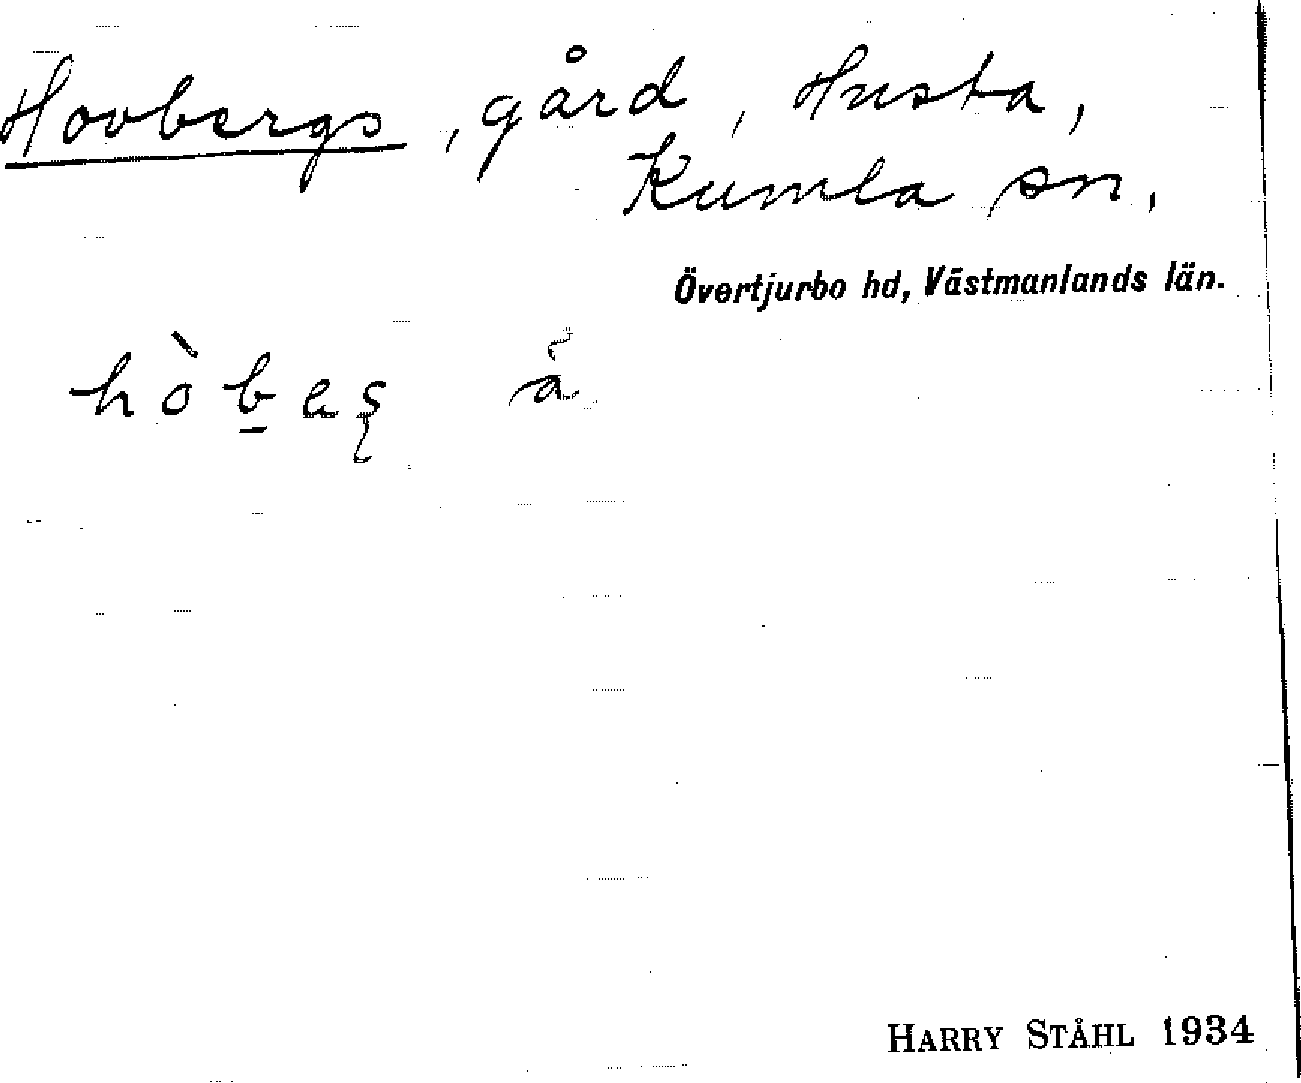 Hovbergs, gård, Husta,
Kumla sn.
Övertjurbo hd, Västmanlands län.
hòb̲eş å
HARRY STÅHL 1934